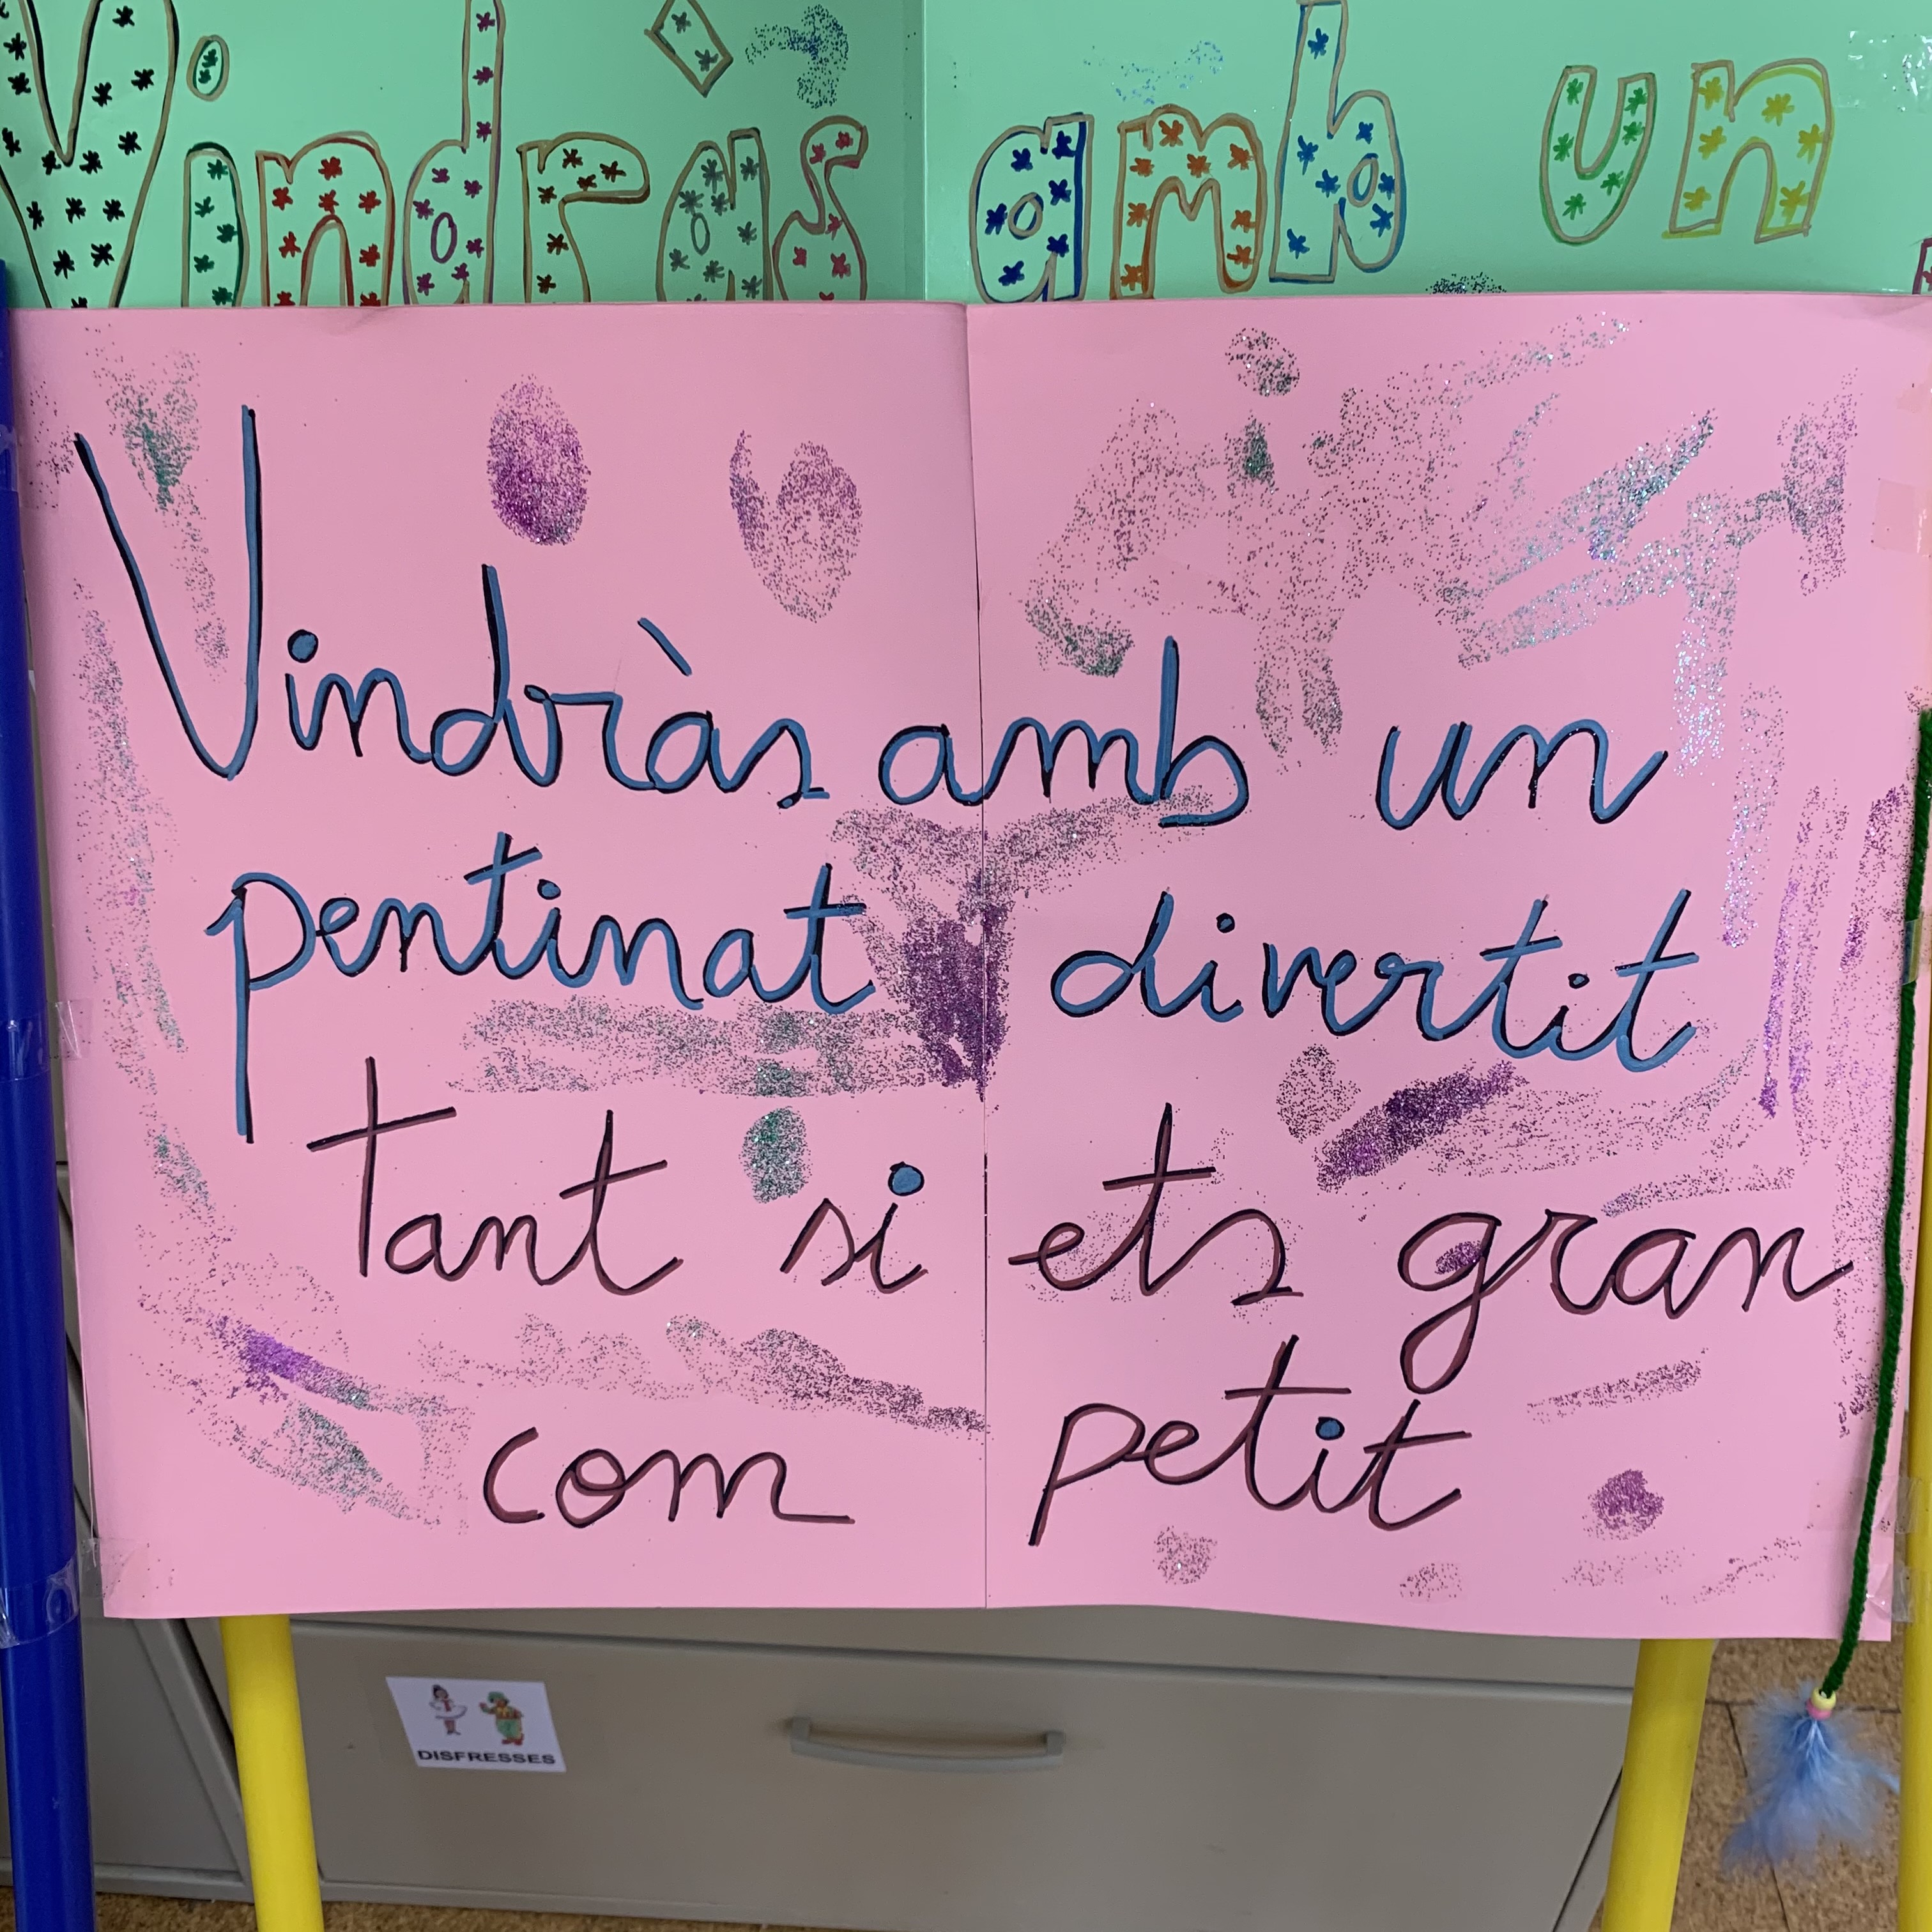 Vindràs amb un
Vindràs amb un
pentinat divertit
Tant si ets gran
com petit
DISFRESSES